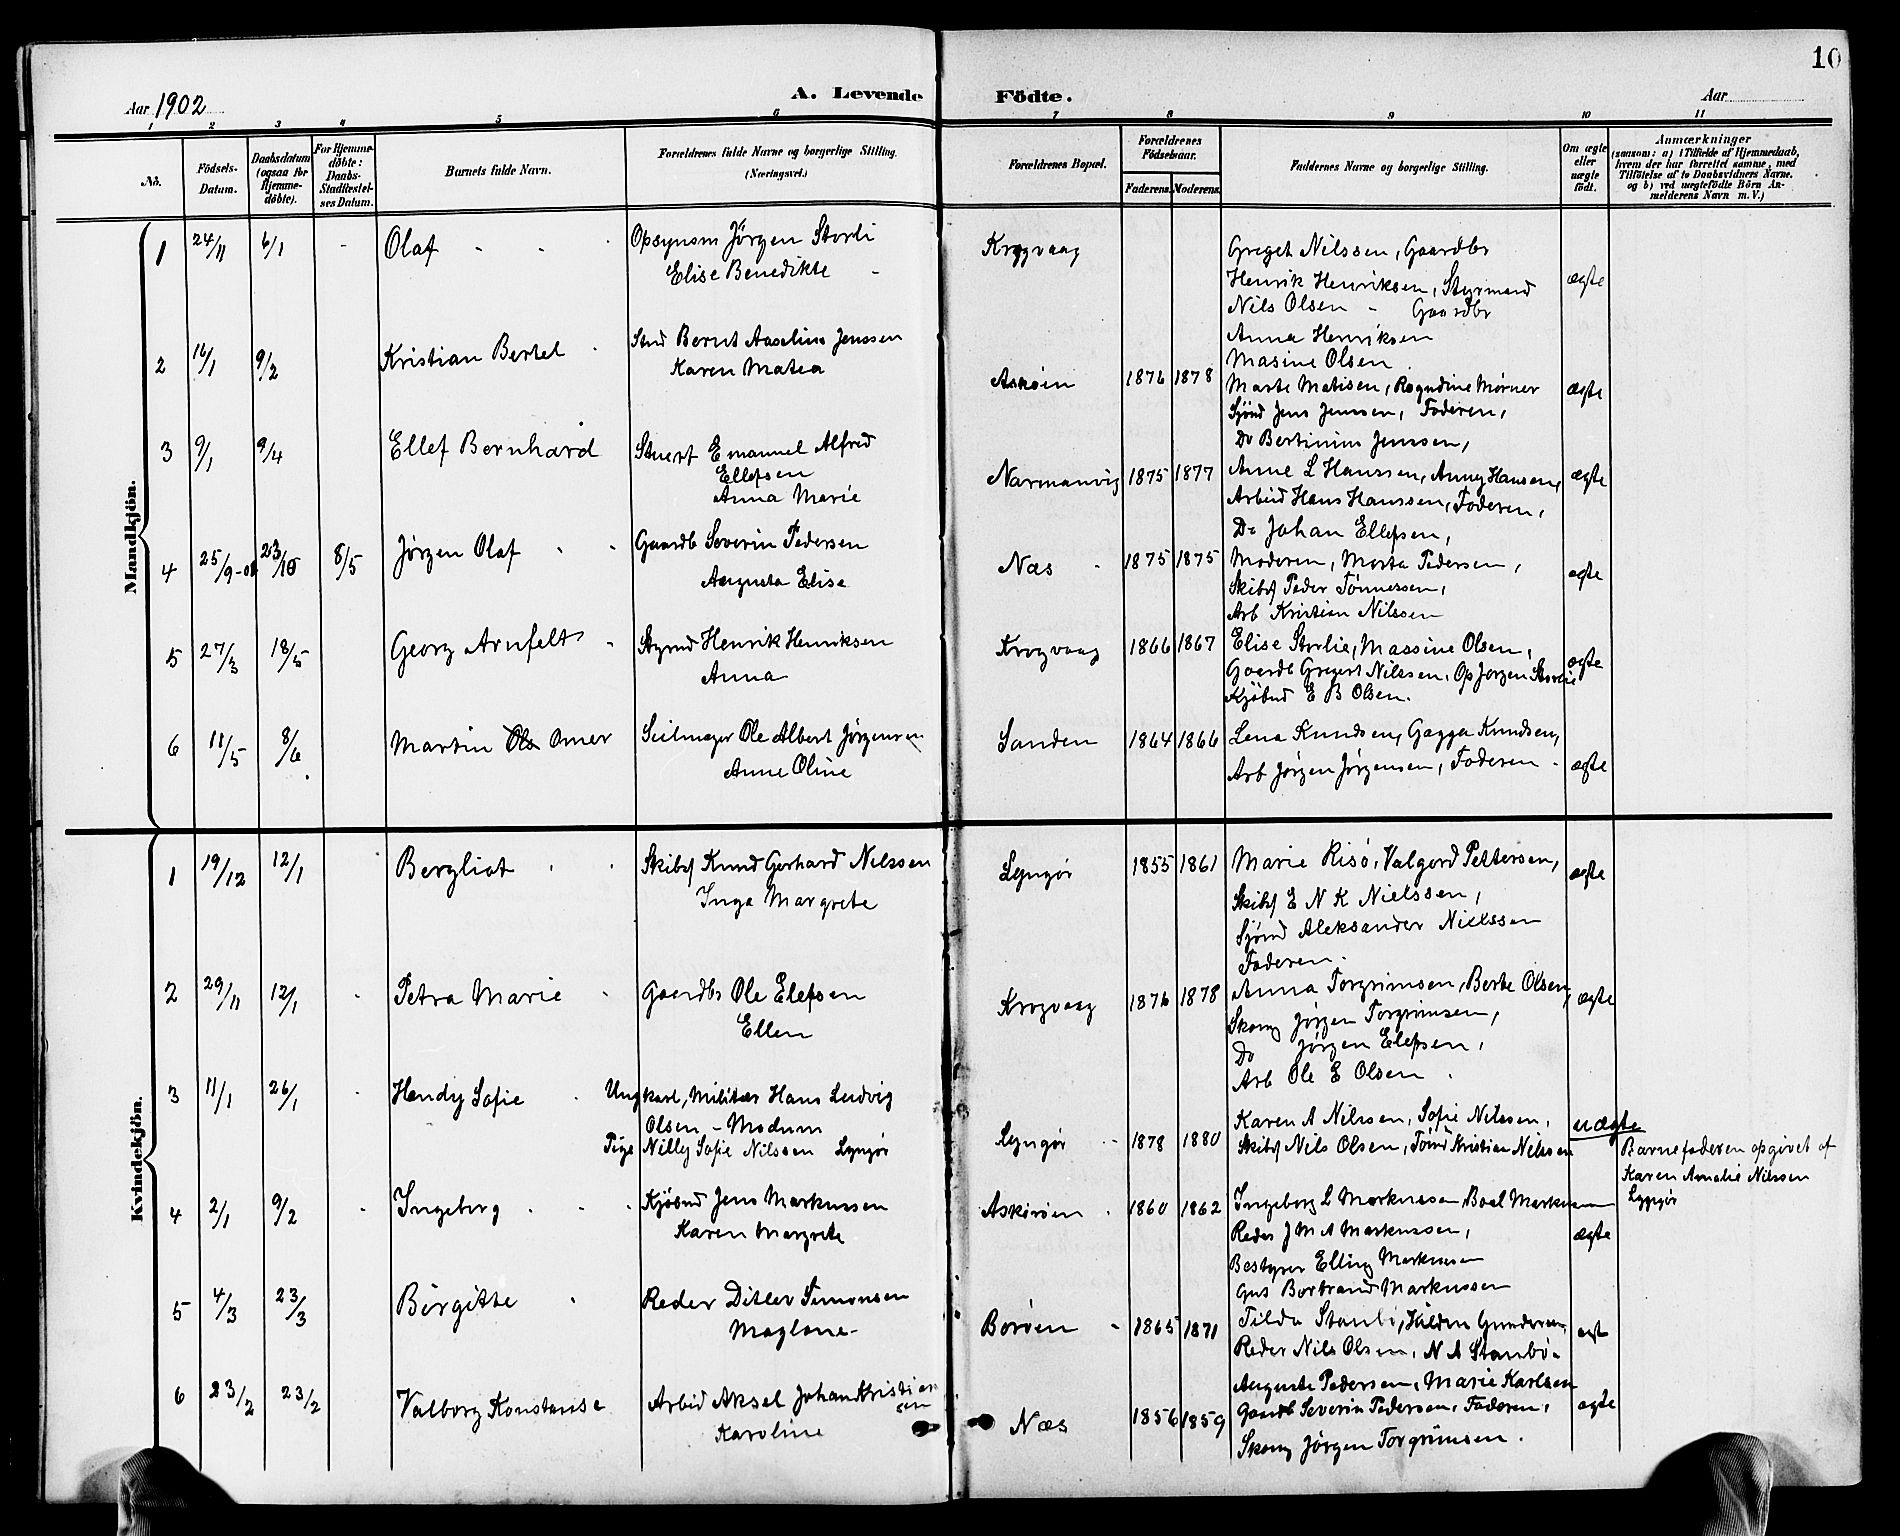 10
Aar 1902
A. Levende Födte.
Aar
1 2 3 4 5 6 7 8 9 10 11
No.
Födsels-Datum.
Daabsdatum (ogsaa for Hjemme-döbte).
For Hjemme-döbte: Daabs-Stadfæstel-ses Datum.
Barnets fulde Navn.
Forældrenes fulde Navne og borgerlige Stilling. (Næringsvei.)
Forældrenes Bopæl.
Forældrenes Födselsaar.
Faderens. Moderens.
Faddernes Navne og borgerlige Stilling.
Om ægte eller uægte födt.
Anmærkninger
(saasom: a) i Tilfælde af Hjemmedaab, hvem der har forrettet samme, med Tilföielse af to Daabsvidners Navne. og b) ved uægtefödte Börn An-melderens Navn m. V.)
Mandkjön.
1 24/11 6/1 - Olaf
Opsynsm Jørgen Storli
Elise Benedikte
Krogvaag
Gregert Nilssen, Gaardbr
Henrik Henriksen, Styrmand
Nils Olsen - Gaardbr
Anna Henriksen
Masine Olsen
ægte
2 16/1 9/2 Kristian Bertel
Stud Bernt Aaselius Jenssen
Karen Matea
Askøin 1876 1878
Marte Matisen, Ragndine Mørner
Sjömd Jens Jenssen, Faderen,
Do Bertinius Jenssen,
ægte
3 9/1 9/4 Ellef Bernhard
Stuert Emanuel Alfred
Ellefsen
Anna Marie
Narmanvig 1875 1877
Anne L Hanssen, Anney Hansen,
Arbeid Hans Hanssen, Faderen,
Do Johan Ellefsen,
ægte
4 25/9-01 23/10 8/5 Jørgen Olaf
Gaardb Severin Pedersen
Augusta Elise
Næs 1875 1875
Moderen, Marta Pedersen,
Skibsf Peder Tönnessen,
Arb Kristian Nilssen
ægte
5 27/3 18/5 Georg Arnfelt
Styrmd Henrik Henriksen
Anna
Krogvaag 1866 1867
Elise Storlie, Massine Olsen,
Gaardb Gregert Nilssen, Op Jørgen Storlie
Kjöbmd E B Olsen.
ægte
6 11/5 8/6 Martin Ole Omer
Seilmager Ole Albert Jørgensen
Anne Oline
Sanden 1864 1866
Lena Knudsen, Gagga Knudsen,
Arb Jørgen Jørgensen, Faderen -
ægte
Kvindekjön.
1 19/12 12/1 Bergliot
Skibsf Knud Gerhard Nilssen
Inga Margrete
Lyngör 1855 1861
Marie Risö, Valgerd Pettersen,
Skibsf E N K Nielssen,
Sjömd Aleksander Nielssen
Faderen.
ægte
2 29/11 12/1 Petra Marie
Gaardbr Ole Elefsen
Ellen
Krogvaag 1876 1878
Anna Torgrimsen, Berte Olsen,
Skomg Jørgen Torgrimsen,
Do Jørgen Elefsen,
Arb Ole E Olsen.
ægte
3 11/1 26/1 Hendy Sofie
Ungkarl, Militær Hans Ludvig
Olsen - Modum
Pige Nilly Sofie Nilssen Lyngör
Lyngör 1878 1880
Karen A Nilssen, Sofie Nilssen,
Skibsf Nils Olsen, Tömd Kristian Nilssen
uægte
Barnefaderen opgivet af
Karen Amalie Nilssen
Lyngör
4 2/1 9/2 Ingeborg
Kjösmd Jens Markussen
Karen Margrete
Askøröen 1860 1862
Ingeborg L Markussen, Boel Markussen
Reder J M A Markussen,
Bestyrer Elling Markussen
Gus Bertrand Markussen
ægte
5 4/3 23/3 Birgitte
Reder Ditlev Simonsen
Maglone
Boröen 1865 1871
Tilda Staubö, Hulda Gundersen,
Reder Nils Olsen, N A Staubö.
ægt
6 23/2 23/2 Valborg Konstanse
Arbid Aksel Johan Kristiansen
Karoline
Næs 1856 1859
Auguste Pedersen, Marie Karlsen
Gaardb Severin Pedersen, Faderen,
Skomg Jørgen Torgrimsen.
ægte